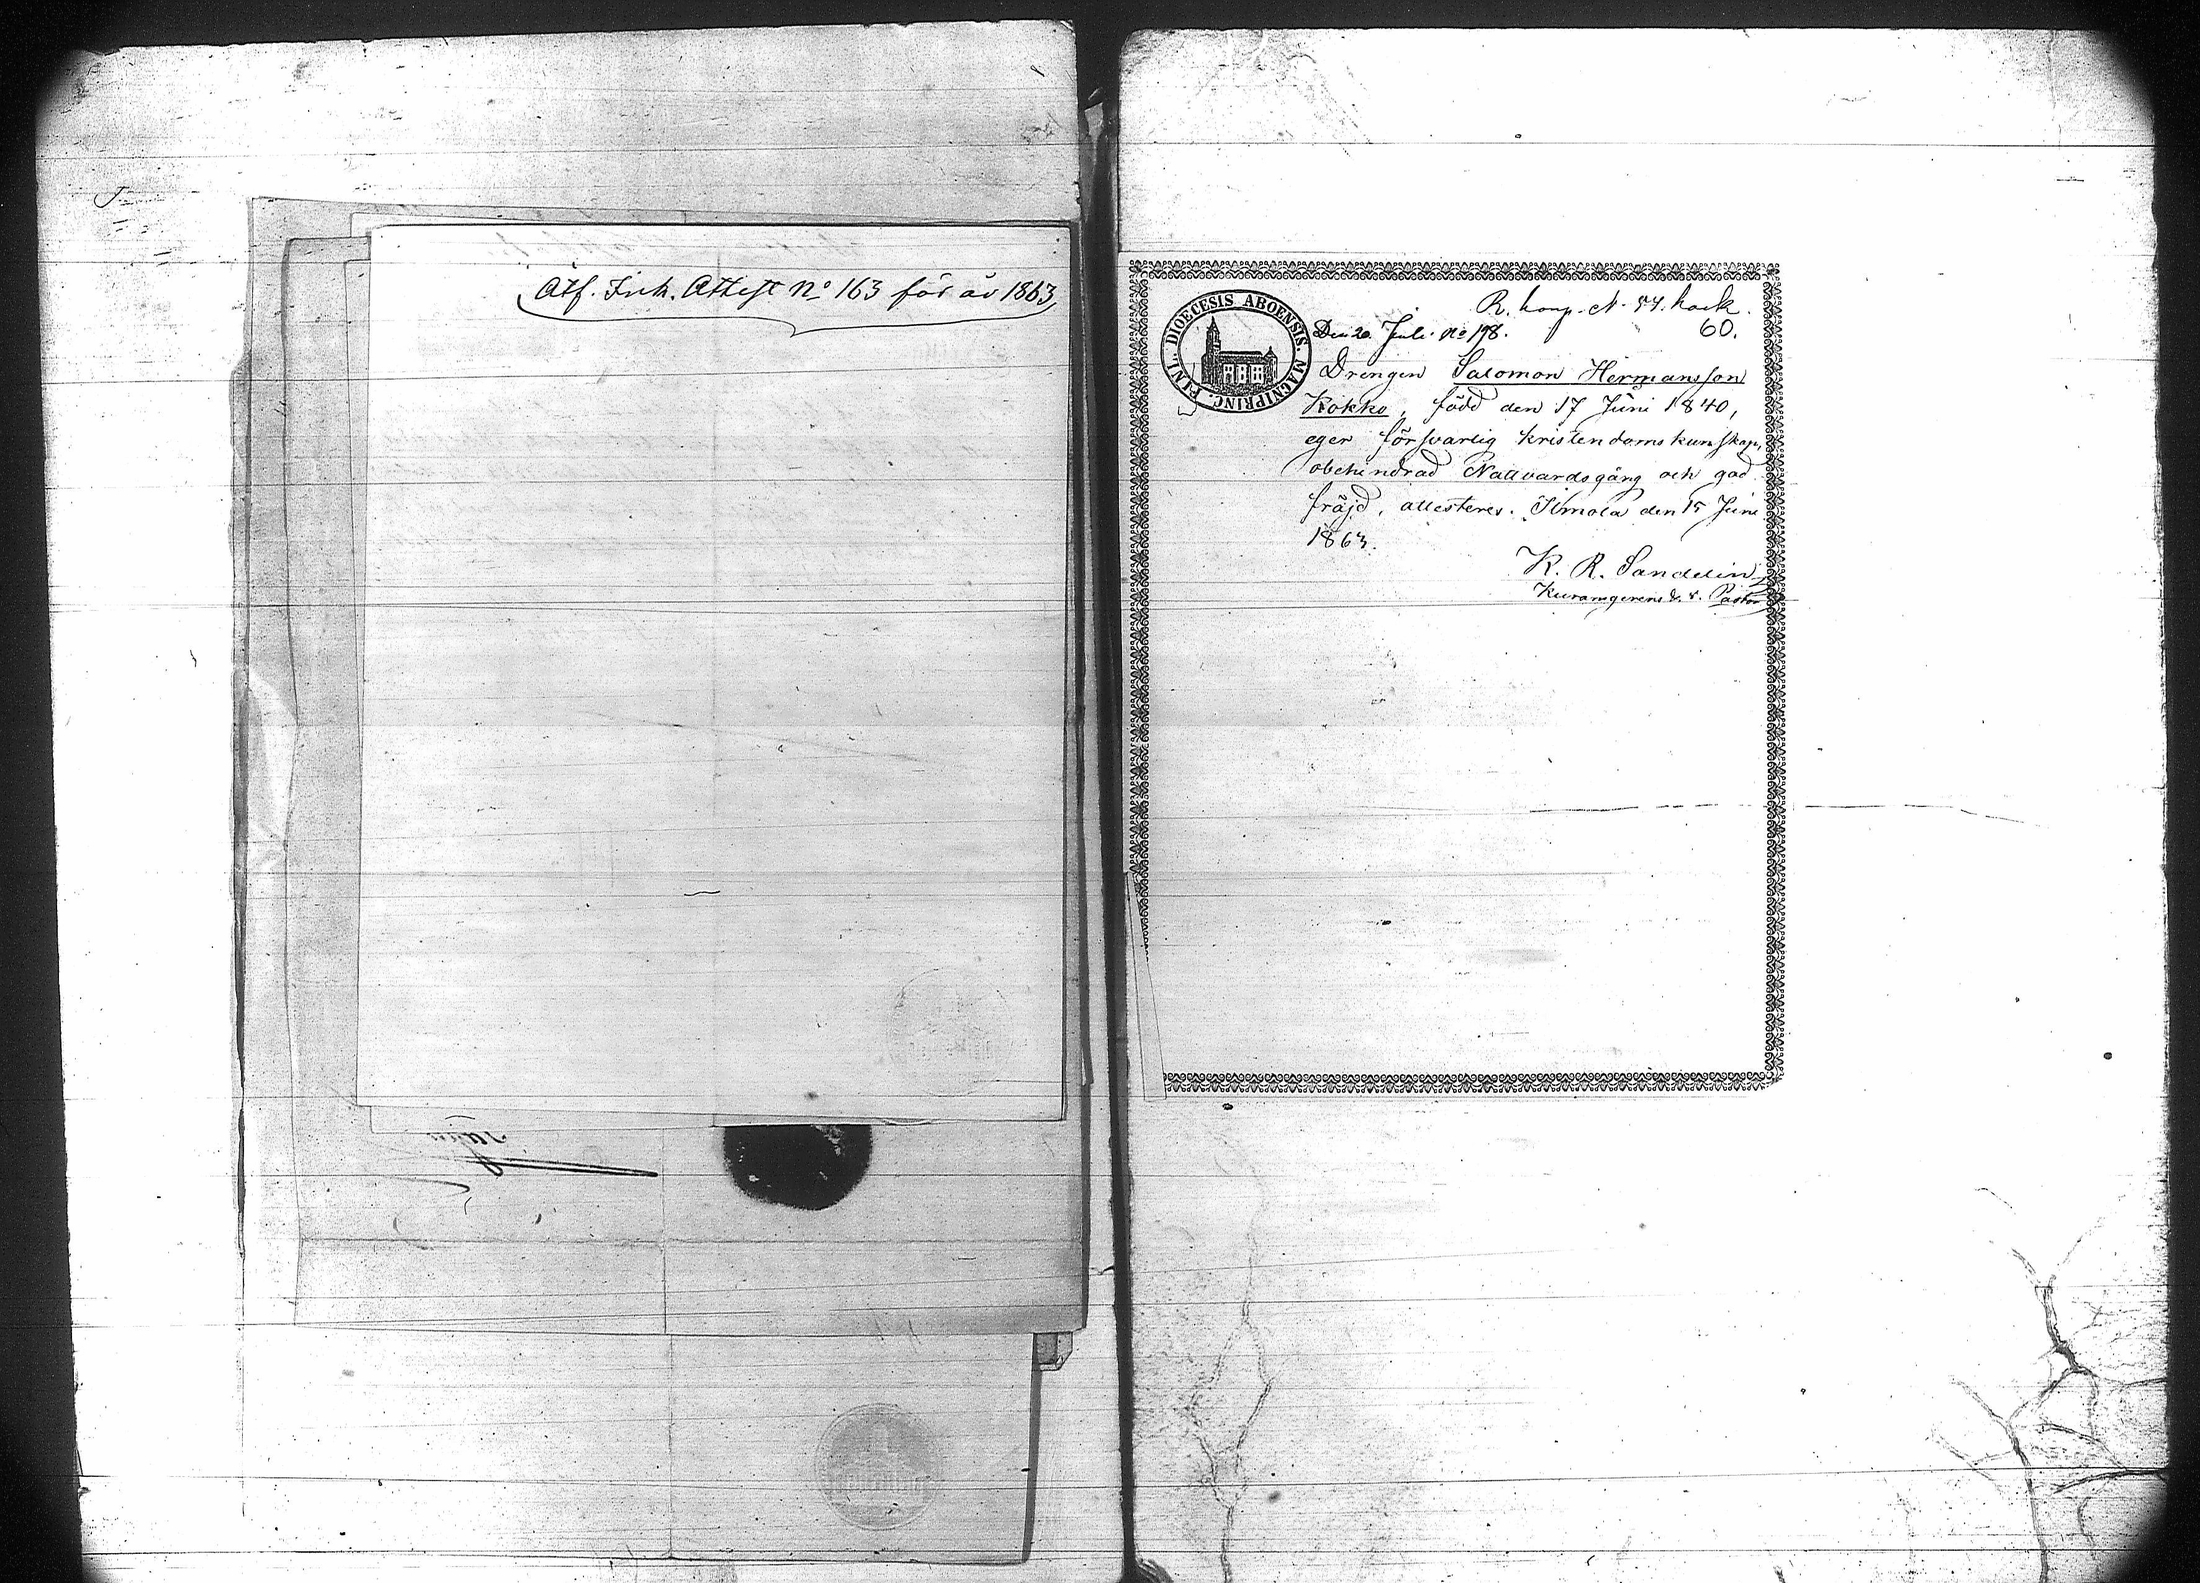 Atf. Ink. Attest No 163 för år 1863
DIOECESIS ABOENSIS. MAGNIPRINC. FINL.
60.
Den 20 Juli No 178.
Drengen Salomon Hermansson
Kokko, född den 17 Juni 1840,
eger försvarlig kristendomskunskap,
obehindrad Nattvardsgång och god
fräjd, attesteres. Ilmola den 15 Juni
1863.
K. R. Sandelin
v. Pastor